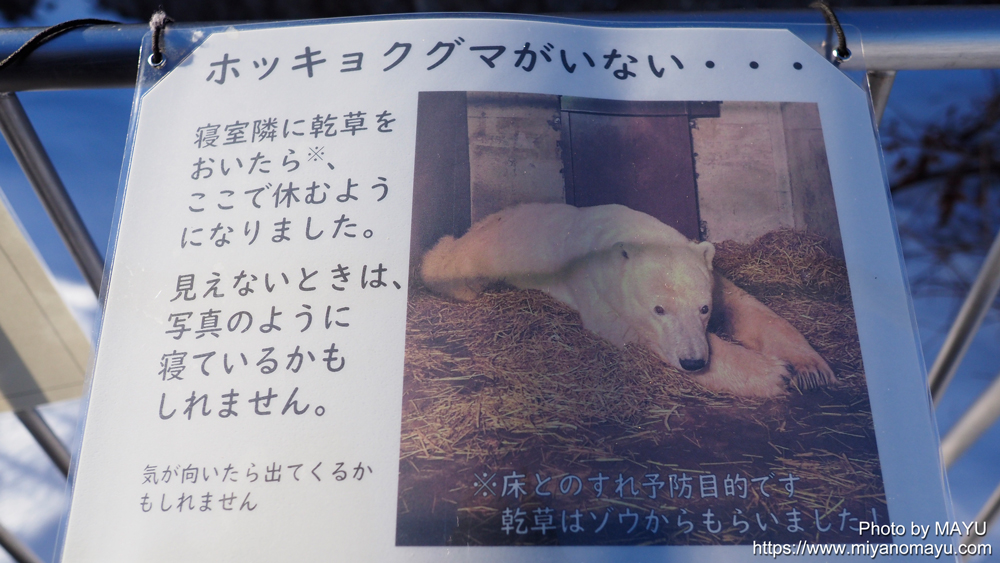 ホッキョクグマがいない・・・
寝室隣に乾草を
おいたら※、
ここで休むよう
になりました。
見えないときは、
写真のように
寝ているかも
しれません。
気が向いたら出てくるか
もしれません
※床とのすれ予防目的です
乾草はゾウからもらいました!
Photo by MAYU
https://www.miyanomayu.com